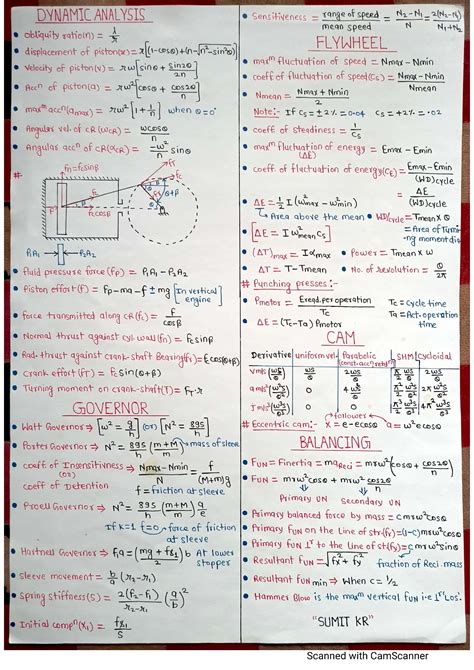 DYNAMIC ANALYSIS
• obliquity ratio(n) = l/r
• displacement of piston(x) = r[(1-cosθ)+(n-√n²-sin²θ)]
• velocity of piston(v) = rw[sinθ + sin2θ/2n]
• Accⁿ of piston(a) = rw²[cosθ + cos2θ/n]
• maxᵐ accⁿ(amax) = rw²[1+1/n] when θ=0°
• Angular vel. of CR(ωCR) = wcosθ/n
• Angulas accⁿ of CR(αCR) = -w²/n sinθ
#
P₁A₁
P₂A₂
• fluid pressure force(Fp) = P₁A₁ - P₂A₂
• Piston effort(F) = Fp-ma-f ± mg [In vertical engine]
• force transmitted along CR(fc) = F/cosβ
• Normal thrust against cyl. wall(fn) = Fc sinβ
• Rad. thrust against crank-shaft Bearing(Fr) = Fc cos(θ+β)
• Crank effort(FT) = Fc sin(θ+β)
• Turning moment on crank-shaft(T) = FT.r
GOVERNOR
• Watt Governor ⇒ [w² = g/h] (or) [N² = 895/h]
• Porter Governor ⇒ N² = 895/h (m+M/m) → mass of sleeve
• coeff of Insensitiveness ⇒ Nmax-Nmin/N = f/(M+m)g
(or)
coeff of Detention
f = friction at sleeve
• Proell Governor ⇒ N² = 895/h (m+M/m) a/e
If K=1 f=0 → force of friction at sleeve
• Hartnell Governor ⇒ F₁a = (mg + fs₁/2) b At lower stopper
• Sleeve movement = b/a (r₂-r₁)
• Spring stiffness(S) = 2(F₂-F₁)/(r₂-r₁) (a/b)²
• Initial compⁿ(x₁) = fs₁/S
• Sensitiveness = range of speed/mean speed = N₂-N₁/N = 2(N₂-N₁)/N₁+N₂
FLYWHEEL
• maxᵐ fluctuation of speed = Nmax - Nmin
• coeff of fluctuation of speed(Cs) = Nmax-Nmin/Nmean
• Nmean = Nmax+Nmin/2
• Note:- If Cs = ±2% = 0.04 Cs = +2% = .02
• coeff of steadiness = 1/Cs
• maxᵐ fluctuation of energy = Emax - Emin
(ΔE)
• coeff. of fluctuation of energy(CE) = Emax-Emin/(WD)cycle
= ΔE/(WD)cycle
• ΔE = ½ I (w²max - w²min)
↳ Area above the mean
• WD/cycle = Tmean X θ
= Area of Turning moment dia.
• [ΔE = I w²mean Cs]
• (ΔT)max = Iαmax
• Power = Tmean X w
• ΔT = T - Tmean
• No. of revolution = θ/2π
# Punching presses :-
Pmotor = Ereq.per operation/Tc
Tc = Cycle time
Ta = Act. operation time
• ΔE = (Tc-Ta) Pmotor
CAM
Derivative uniform vel. Parabolic (const.acc/reta) SHM Cycloidal
# Eccentric cam:- x = e-ecosθ
followers
a = w²e cosθ
BALANCING
• FUN = Finertia = maReci = mrw²(cosθ + cos2θ/n)
• FUN = mrw²cosθ + mrw² cos2θ/n
Primary UN Secondary UN
• Primary balanced force by mass = cmrw²cosθ
• Primary FUN on the Line of str(Fx) = (1-c)mrw²cosθ
• Primary FUN ⊥ʳ to the Line of st(Fy) = cmrw²sinθ
• Resultant FUN = √Fx² + Fy²
fraction of Reci. mass
• Resultant FUN min ⇒ When c = 1/2
• Hammer Blow is the maxᵐ vertical FUN i.e ⊥ʳ to Los.
"SUMIT KR"
Scanned with CamScanner